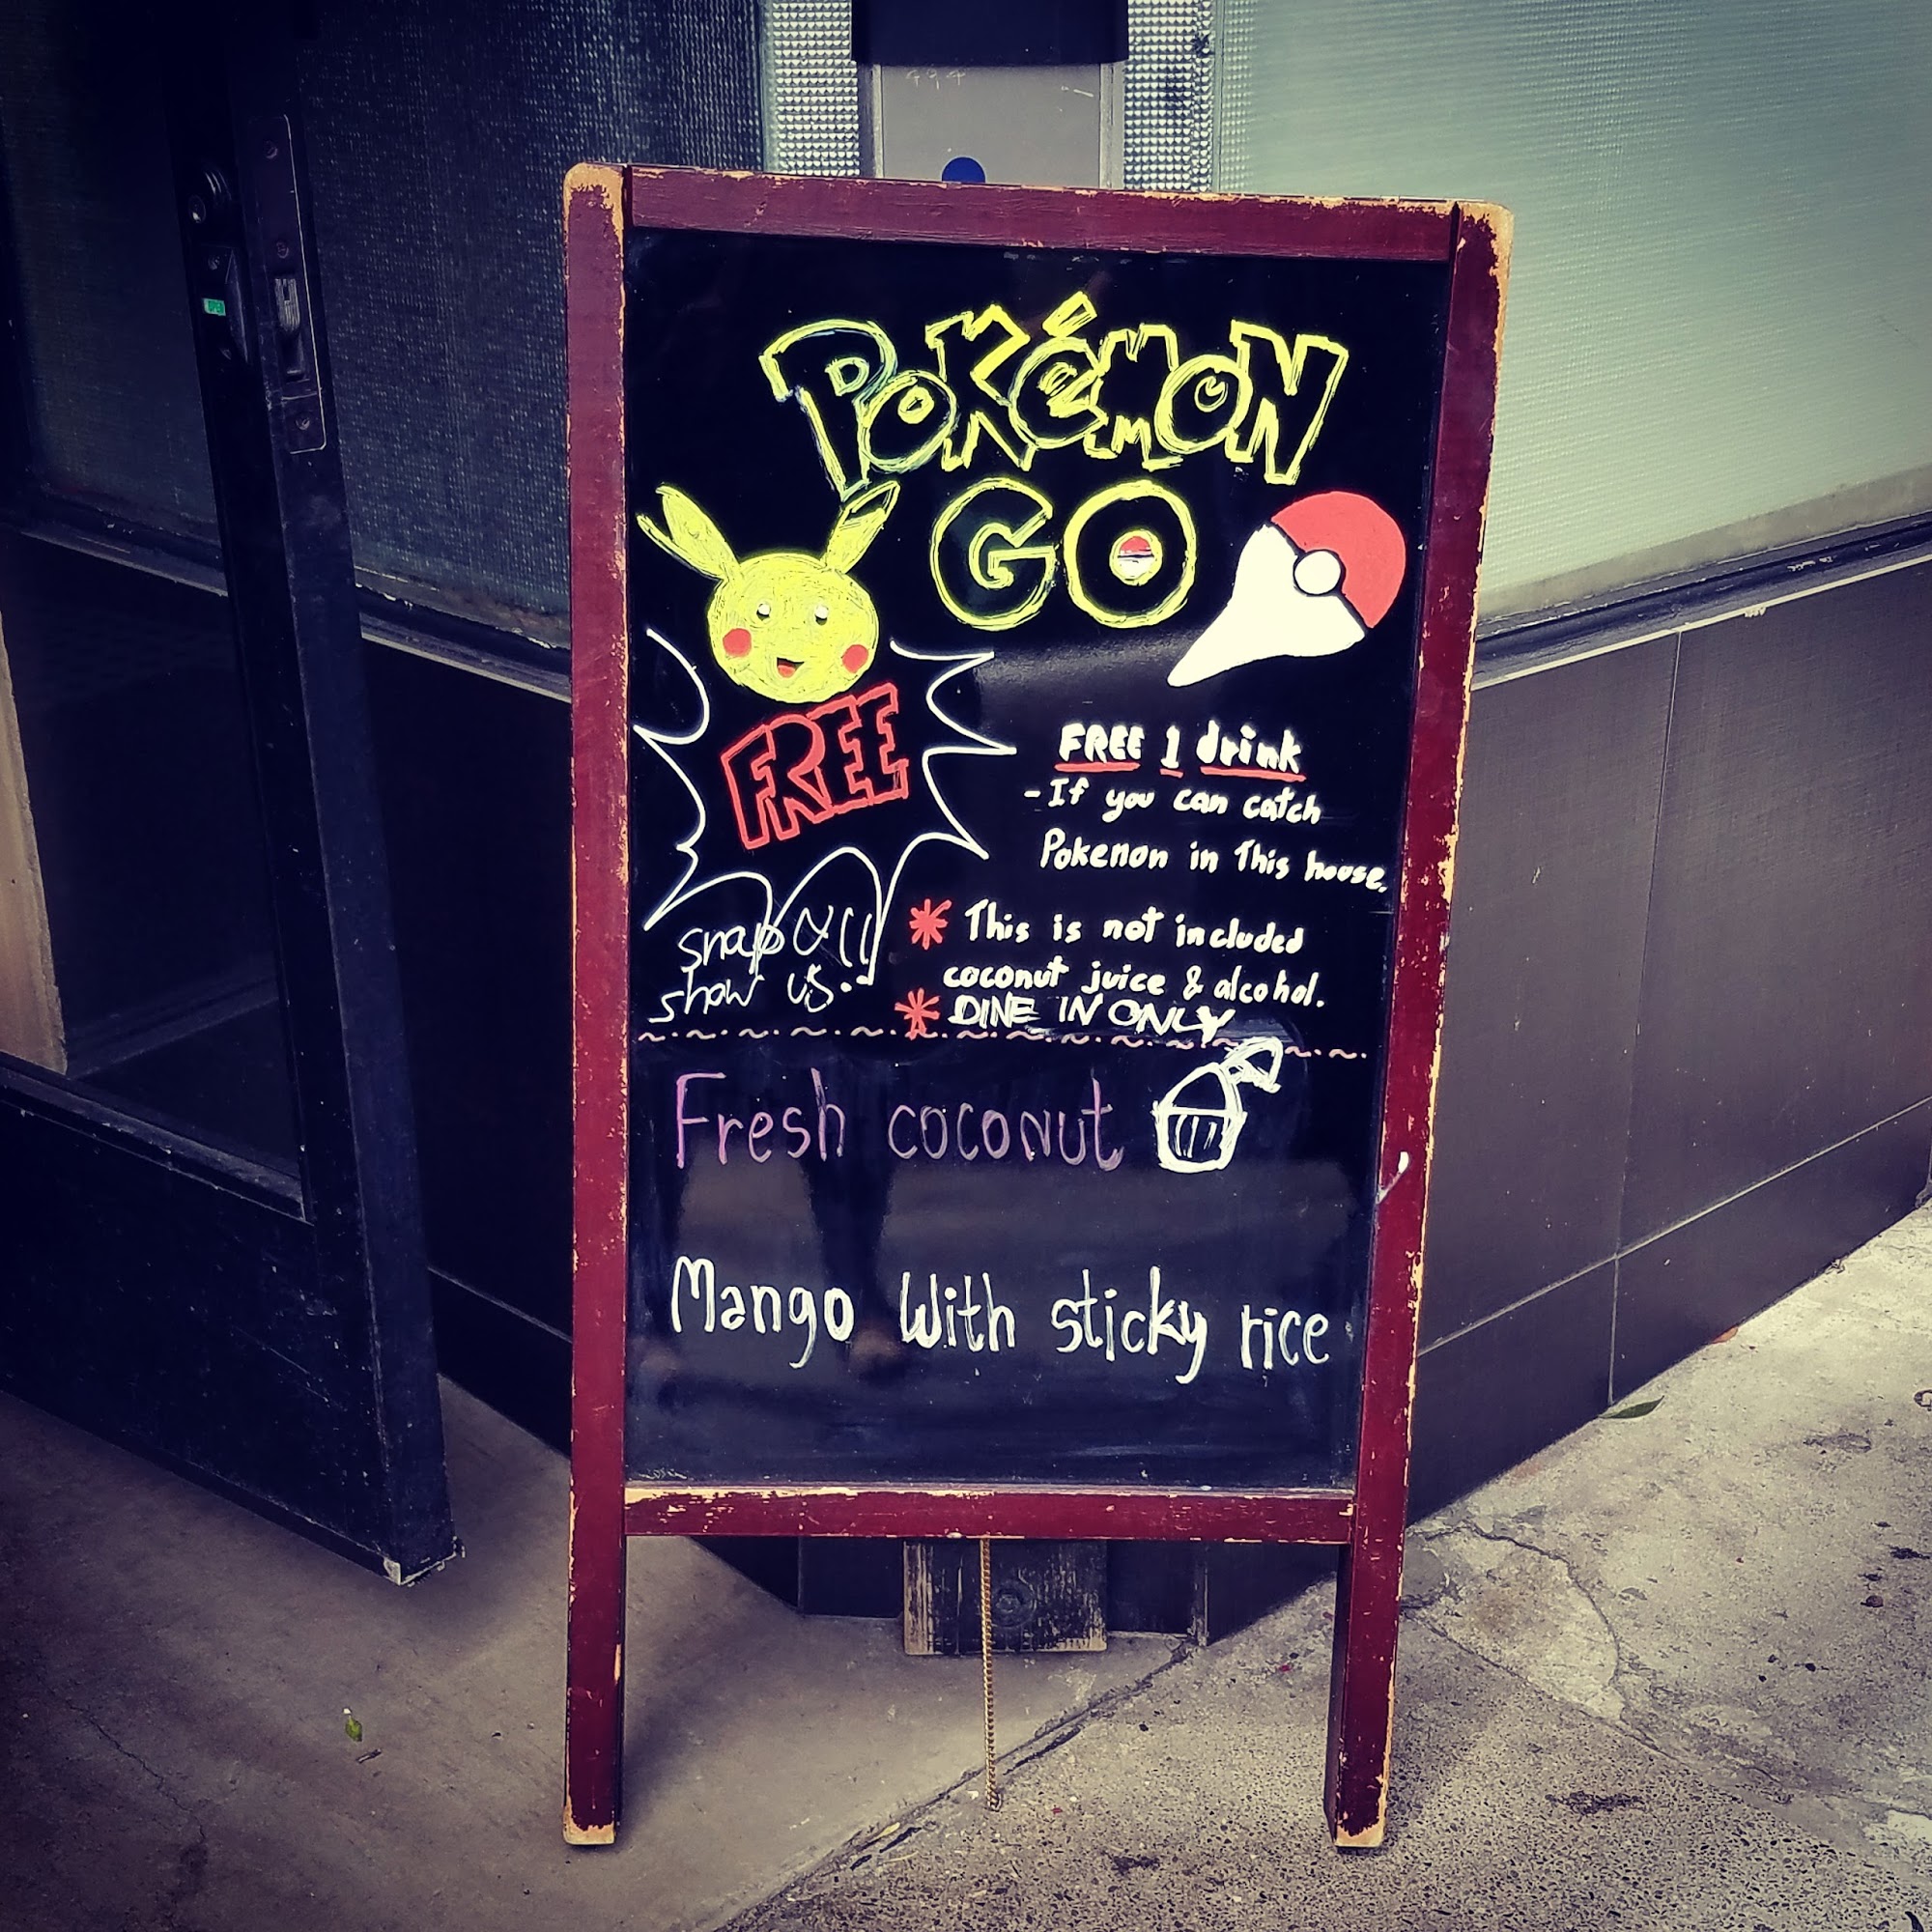 POKÉMON
GO
FREE
FREE 1 drink
- If you can catch
Pokenon in This house.
snap &
show us
* This is not included
coconut juice & alcohol.
* DINE IN ONLY
Fresh coconut
Mango With sticky rice